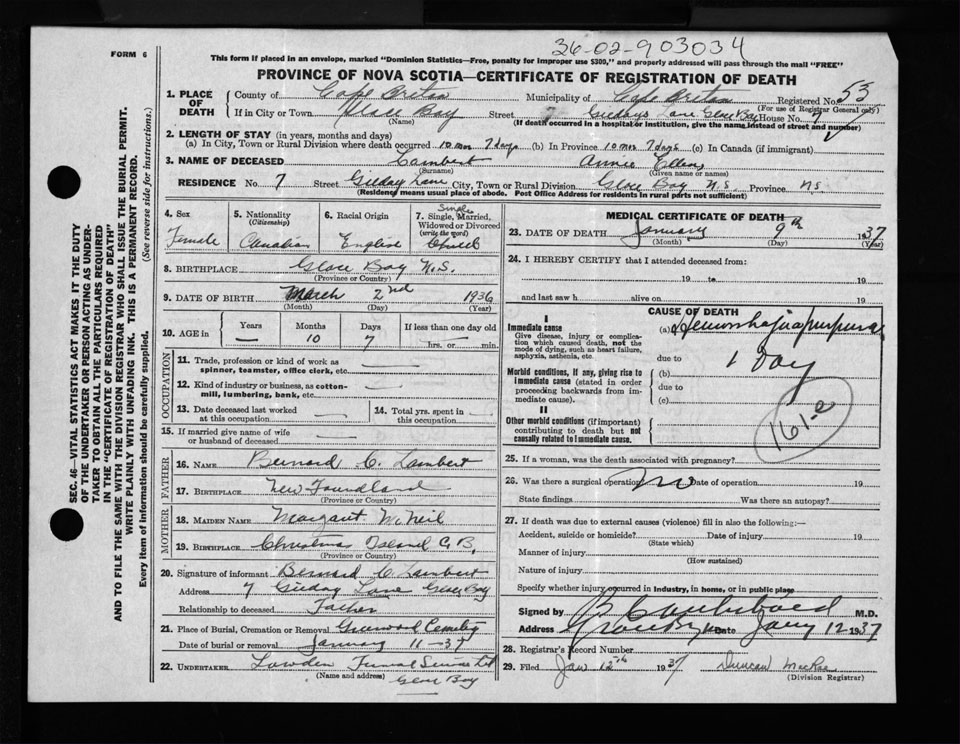 36-02-903034
FORM 6
This form if placed in an envelope, marked "Dominion Statistics—Free, penalty for improper use $300," and properly addressed will pass through the mail "FREE"
PROVINCE OF NOVA SCOTIA—CERTIFICATE OF REGISTRATION OF DEATH
SEC. 46—VITAL STATISTICS ACT MAKES IT THE DUTY
OF THE UNDERTAKER OR PERSON ACTING AS UNDER-
TAKER TO OBTAIN ALL THE PARTICULARS REQUIRED
IN THE "CERTIFICATE OF REGISTRATION OF DEATH"
AND TO FILE THE SAME WITH THE DIVISION REGISTRAR WHO SHALL ISSUE THE BURIAL PERMIT.
WRITE PLAINLY WITH UNFADING INK. THIS IS A PERMANENT RECORD.
Every item of information should be carefully supplied. (See reverse side for instructions.)
1. PLACE OF DEATH County of Cape Breton Municipality of Cape Breton Registered No. 53
(For use of Registrar General only)
If in City or Town Glace Bay Street 7 Guidays Lane Glace Bay House No. 7
(Name) (If death occurred in a hospital or institution, give the name instead of street and number)
2. LENGTH OF STAY (in years, months and days)
(a) In City, Town or Rural Division where death occurred 10 mos 7 days (b) In Province 10 mos 7 days (c) In Canada (if immigrant)
3. NAME OF DECEASED Lambert Annie Ellen
(Surname) (Given name or names)
RESIDENCE No. 7 Street Guiday Lane City, Town or Rural Division Glace Bay N.S. Province N.S.
(Residence means usual place of abode. Post Office Address for residents in rural parts not sufficient)
4. Sex Female
5. Nationality (Citizenship) Canadian
6. Racial Origin English
7. Single, Married, Widowed or Divorced (write the word) Single Child
8. BIRTHPLACE Glace Bay N.S.
(Province or Country)
9. DATE OF BIRTH March 2nd 1936
(Month) (Day) (Year)
10. AGE in Years — Months 10 Days 7 If less than one day old hrs. or — min.
OCCUPATION
11. Trade, profession or kind of work as spinner, teamster, office clerk, etc. —
12. Kind of industry or business, as cotton-mill, lumbering, bank, etc. —
13. Date deceased last worked at this occupation —
14. Total yrs. spent in this occupation —
15. If married give name of wife or husband of deceased —
FATHER
16. NAME Bernard C. Lambert
17. BIRTHPLACE New Foundland
(Province or Country)
MOTHER
18. MAIDEN NAME Margaut McNeil
19. BIRTHPLACE Christmas Island C.B.
(Province or Country)
20. Signature of informant Bernard C Lambert
Address 7 Guiday Lane Glace Bay
Relationship to deceased Father
21. Place of Burial, Cremation or Removal Greenwood Cemetry
Date of burial or removal January 11-37
22. UNDERTAKER Lowden Funeral Service Ltd
(Name and address) Glace Bay
MEDICAL CERTIFICATE OF DEATH
23. DATE OF DEATH January 9th 1937
(Month) (Day) (Year)
24. I HEREBY CERTIFY that I attended deceased from:
19 to 19
and last saw h alive on 19
CAUSE OF DEATH
I
Immediate cause
Give disease, injury or complication which caused death, not the mode of dying, such as heart failure, asphyxia, asthenia, etc.
(a) Hemorrhagia purpura
due to
Morbid conditions, if any, giving rise to immediate cause (stated in order proceeding backwards from immediate cause).
(b) 1 Day
due to
(c)
II
Other morbid conditions (if important) contributing to death but not causally related to immediate cause.
161-e
25. If a woman, was the death associated with pregnancy?
26. Was there a surgical operation? No Date of operation 19
State findings Was there an autopsy?
27. If death was due to external causes (violence) fill in also the following:—
Accident, suicide or homicide? Date of injury 19
(State which)
Manner of injury
(How sustained)
Nature of injury
Specify whether injury occurred in Industry, in home, or in public place
Signed by M.D.
Address Date Jany 12 1937
28. Registrar's Record Number
29. Filed Jan 12th 1937 Duncan MacRae
(Division Registrar)